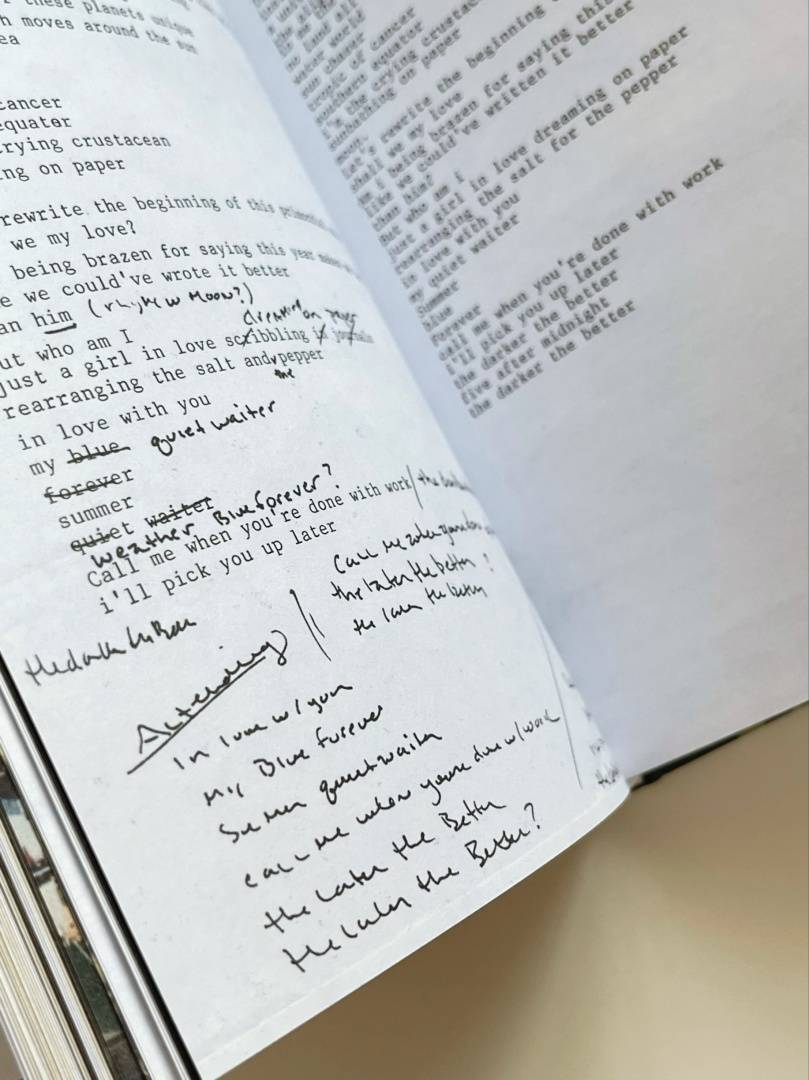 these planets unique
moves around the sun
ea
cancer
equator
crying crustacean
ng on paper
rewrite the beginning of this
we my love?
being brazen for saying this year
e we could've wrote it better
an him (rhyme w moon?)
dreaming on paper
ut who am I
just a girl in love scribbling in journals
rearranging the salt and pepper
the
in love with you
my blue quiet waiter
forever
summer
quiet waiter
weather Blue forever?
Call me when you're done with work / the
i'll pick you up later
Call me when you're done
the later the better
the later the better
the
In love w/ you
my Blue forever
Summer quiet waiter
call me when you're done w/ work
the Later the Better
the Later the Better?
water world
sun chaser
tropic of cancer
southern equator
i'm the crying crustacean
sunbathing on paper
moon.
let's rewrite the beginning
shall we my love
am i being brazen for saying this
like we could've written it better
than him!
but who am i
just a girl in love dreaming on paper
rearranging the salt for the pepper
in love with you
my quiet waiter
Summer
blue
forever
call me when you're done with work
i'll pick you up later
the darker the better
five after midnight
the darker the better